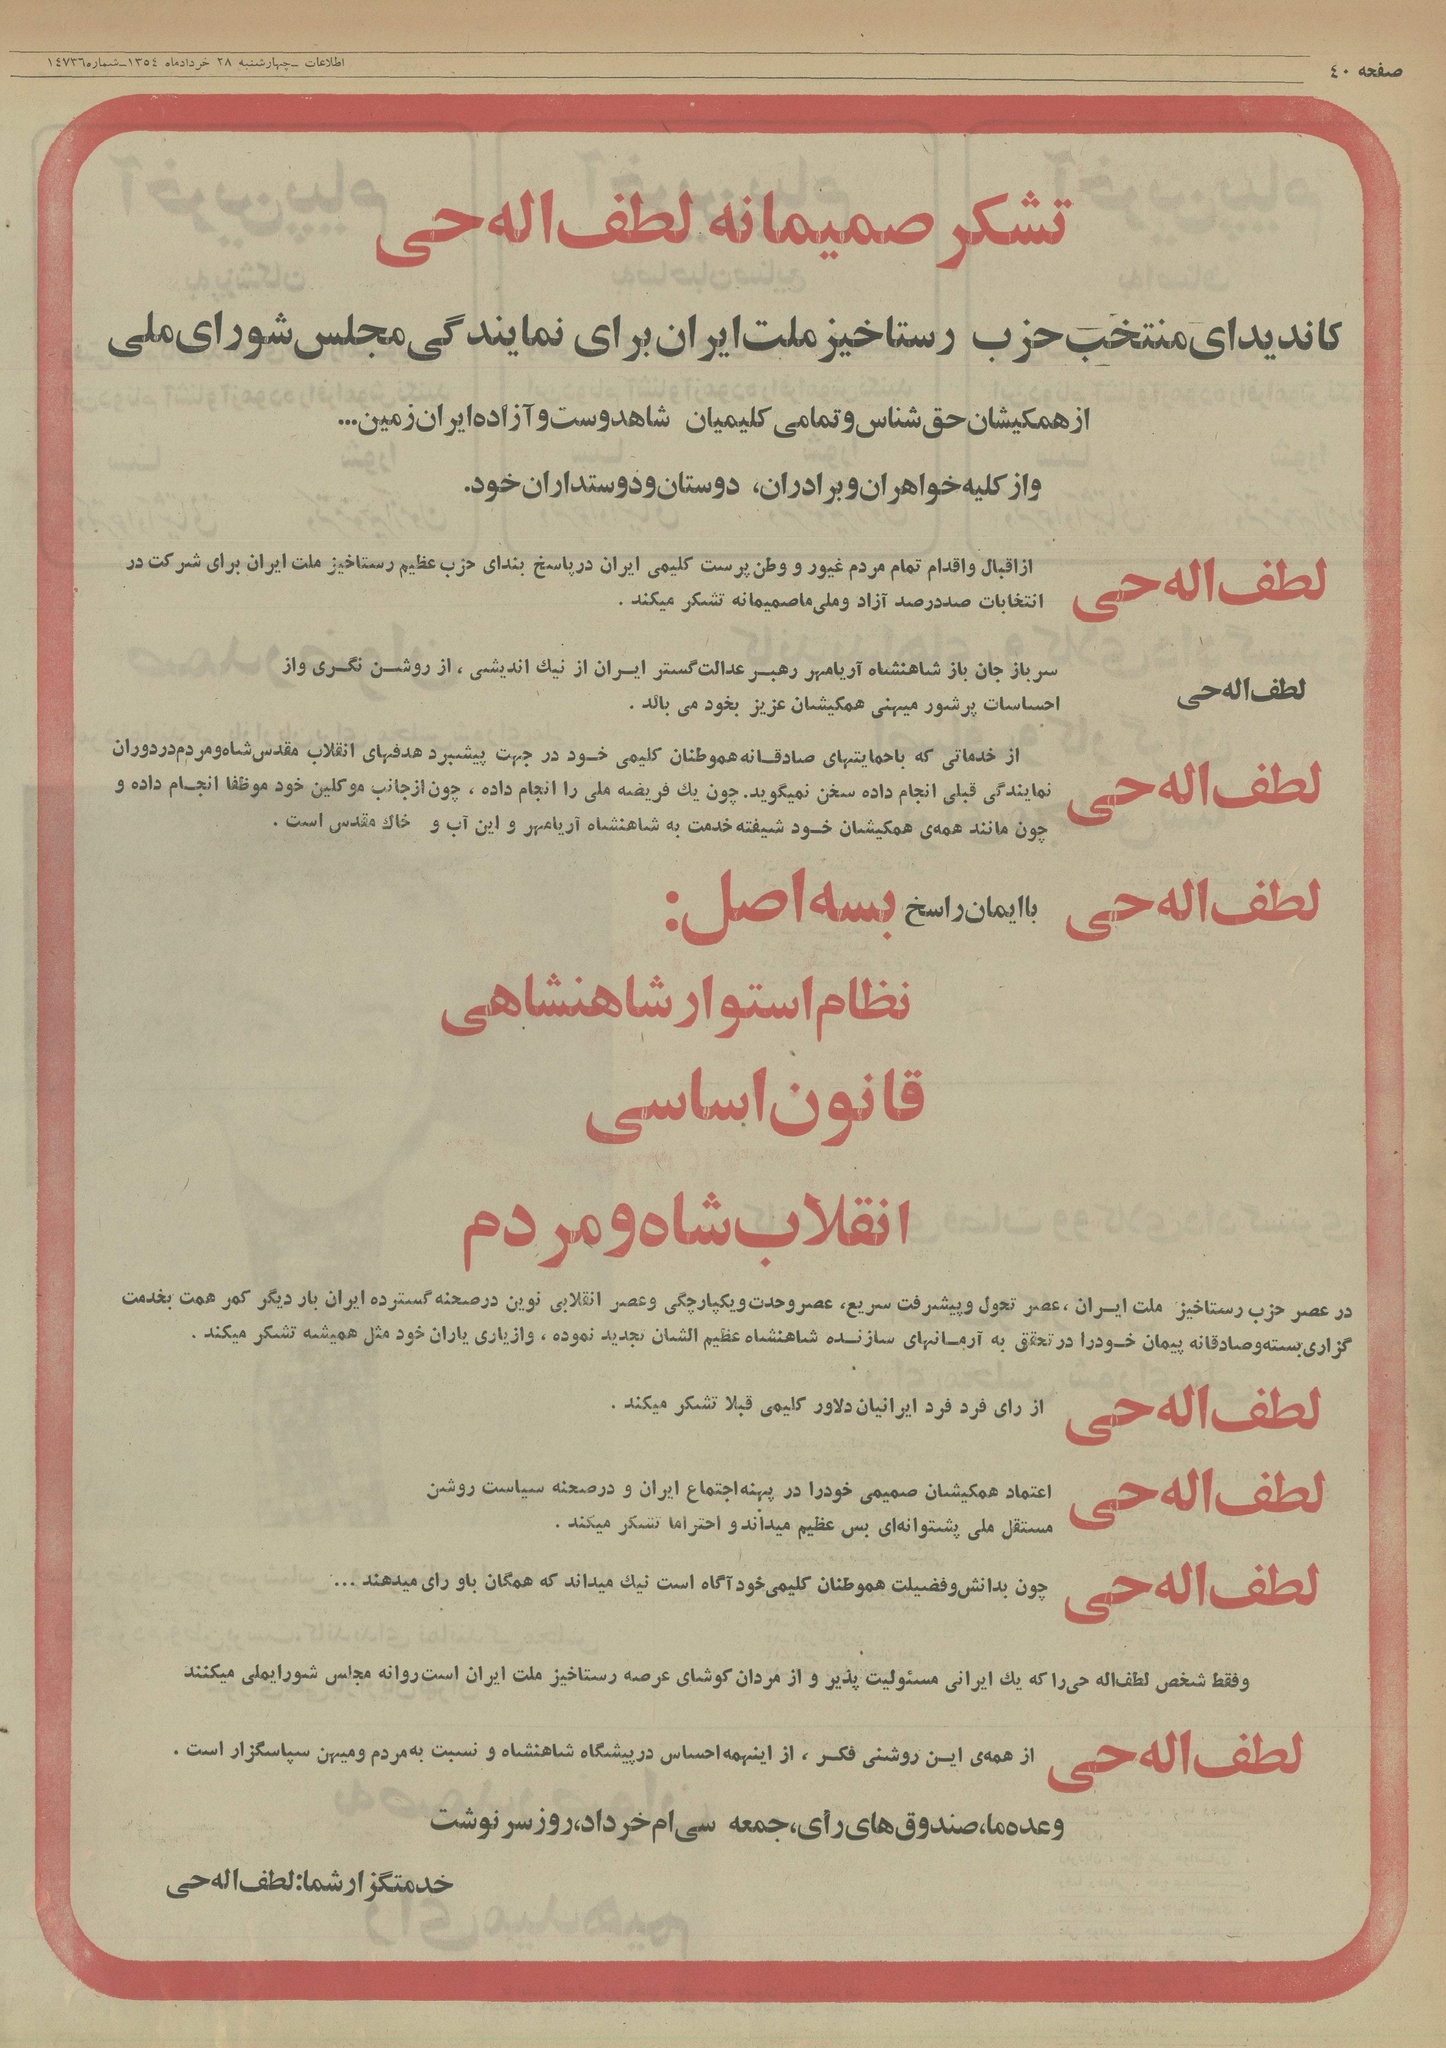 صفحه ٤٠
اطلاعات ـ چهارشنبه ٢٨ خردادماه ١٣٥٤ـ شماره ١٤٧٣٦
تشکر صمیمانه لطف‌اله حی
کاندیدای منتخب حزب رستاخیز ملت ایران برای نمایندگی مجلس شورای ملی
از همکیشان حق شناس و تمامی کلیمیان شاهدوست و آزاده ایران زمین...
و از کلیه خواهران و برادران، دوستان و دوستداران خود.
لطف‌اله حی
از اقبال و اقدام تمام مردم غیور و وطن پرست کلیمی ایران در پاسخ بندای حزب عظیم رستاخیز ملت ایران برای شرکت در
انتخابات صددرصد آزاد و ملی ما صمیمانه تشکر میکند .
لطف‌اله حی
سرباز جان باز شاهنشاه آریامهر رهبر عدالت‌گستر ایران از نیك اندیشی ، از روشن نگری و از
احساسات پرشور میهنی همکیشان عزیز بخود می بالد .
لطف‌اله حی
از خدماتی که باحمایتهای صادقانه هموطنان کلیمی خود در جهت پیشبرد هدفهای انقلاب مقدس شاه و مردم در دوران
نمایندگی قبلی انجام داده سخن نمیگوید. چون یك فریضه ملی را انجام داده ، چون از جانب موکلین خود موظفا انجام داده و
چون مانند همه‌ی همکیشان خود شیفته خدمت به شاهنشاه آریامهر و این آب و خاك مقدس است .
لطف‌اله حی باایمان راسخ بسه اصل:
نظام استوار شاهنشاهی
قانون اساسی
انقلاب شاه و مردم
در عصر حزب رستاخیز ملت ایران ، عصر تحول و پیشرفت سریع، عصر وحدت و یکپارچگی و عصر انقلابی نوین در صحنه گسترده ایران بار دیگر کمر همت بخدمت
گزاری بسته و صادقانه پیمان خودرا در تحقق به آرمانهای سازنده شاهنشاه عظیم الشان تجدید نموده ، و از یاری یاران خود مثل همیشه تشکر میکند .
لطف‌اله حی از رای فرد فرد ایرانیان دلاور کلیمی قبلا تشکر میکند .
لطف‌اله حی
اعتماد همکیشان صمیمی خودرا در پهنه اجتماع ایران و درصحنه سیاست روشن
مستقل ملی پشتوانه‌ای بس عظیم میداند و احتراما تشکر میکند .
لطف‌اله حی چون بدانش و فضیلت هموطنان کلیمی خود آگاه است نیك میداند که همگان باو رای میدهند ...
وفقط شخص لطف‌اله حی‌را که یك ایرانی مسئولیت پذیر و از مردان کوشای عرصه رستاخیز ملت ایران است روانه مجلس شورایملی میکنند
لطف‌اله حی از همه‌ی این روشنی فکر ، از اینهمه احساس درپیشگاه شاهنشاه و نسبت به مردم و میهن سپاسگزار است .
وعده ما، صندوق‌های رأی، جمعه سی‌ام خرداد، روز سرنوشت
خدمتگزار شما: لطف‌اله حی